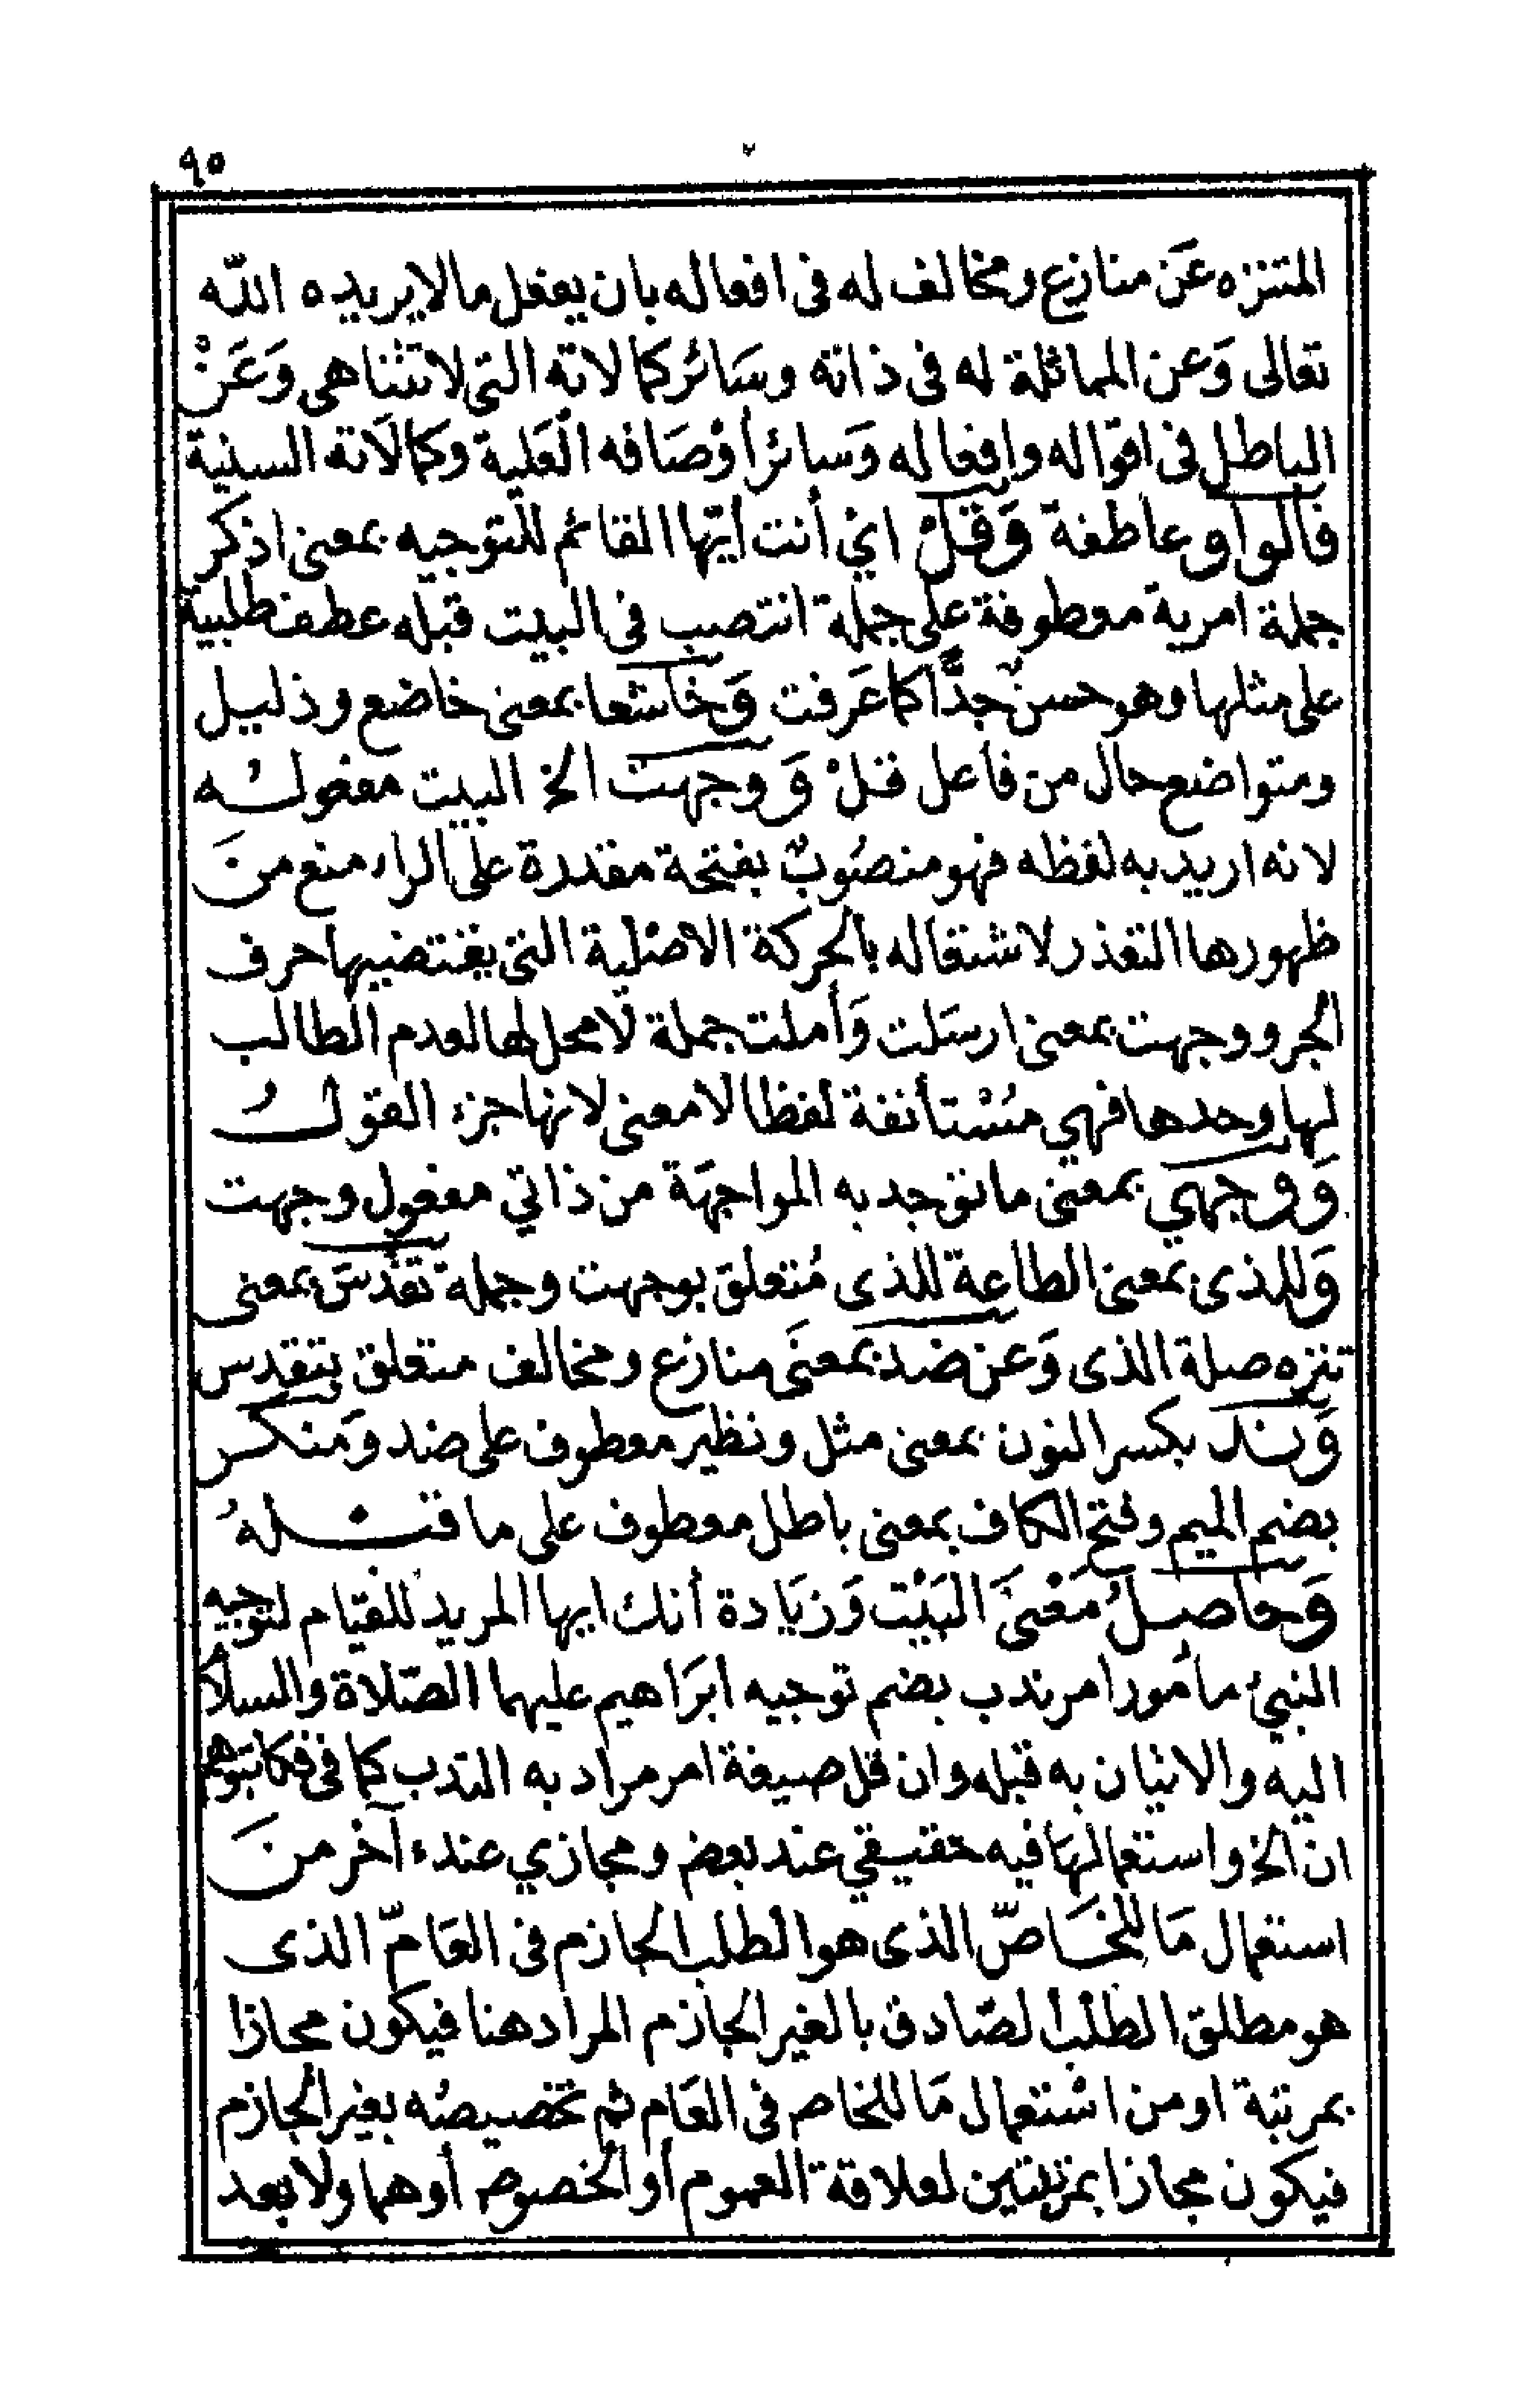 ٩٥
المتنزه عَن منازع ومخالف له فى افعاله بان يفعل مالا يريده الله
تعالى وَعن المماثلة له فى ذاته وسَائر كمالاته التى لا تتناهى وَعَنْ
الباطل فى اقواله وافعاله وَسائر أوْصَافه العَلية وكمالَاته السنية
فالواو عاطفة وَقلْ اي أنت أيّها القائم للتوجيه بمعنى اذكر
جملة امرية معطوفة على جملة انتصب فى البيت قبله عطف طلبية
على مثلها وهو حسنٌ جدًّا كما عَرفت وَخاشعا بمعنى خاضع وذليل
ومتواضع حال من فاعل قلْ وَوجهت الخ البيت مفعولُه
لانه اريد به لفظه فهو منصُوبٌ بفتحة مقدرة على الراء منع منَ
ظهورها التعذر لاشتغاله بالحركة الاصْلية التى يقتضيها حرف
الجر ووجهت بمعنى ارسَلت وَأملت جملة لا محل لها لعدم الطالب
لها وحدها فهي مسْتأنفة لفظا لا معنى لانها جزء القولُ
وَوجهي بمعنى ما توجد به المواجهَة من ذاتي مفعول وجهت
وَللذى بمعنى الطاعة للذى مُتعلق بوجهت وجملة تقدّسَ بمعنى
تنزه صلة الذى وَعن ضد بمعنَى منازع ومخالف متعلق بتقدس
وَند بكسر النون بمعنى مثل ونظير معطوف على ضد وَمنكر
بضم الميم وفتح الكاف بمعنى باطل معطوف على ما قبلهُ
وَحاصلُ مَعْنَى البَيْت وَزيَادة أنك ايها المريد للقيام لتوجيه
النبيّ مأمور امر ندب بضم توجيه ابرَاهيم عليهما الصّلاة والسلام
اليه والاتيان به قبله وان قل صيغة امر مراد به الندب كما فى فكاتبوهم
ان الخ واستعمالهَا فيه حقيقي عند بعض ومجازي عند آخر منَ
استعمال مَا للخَاصّ الذى هو الطلب الجازم فى العَامّ الذى
هو مطلق الطلْب الصّادق بالغير الجازم المراد هنا فيكون مجازا
بمرتبة او من اسْتعمال مَا للخاص فى العَام ثم تخصيصُه بغير الجازم
فيكون مجازا بمرتبتين لعلاقة العموم أو الخصوص أو هما ولا بعد